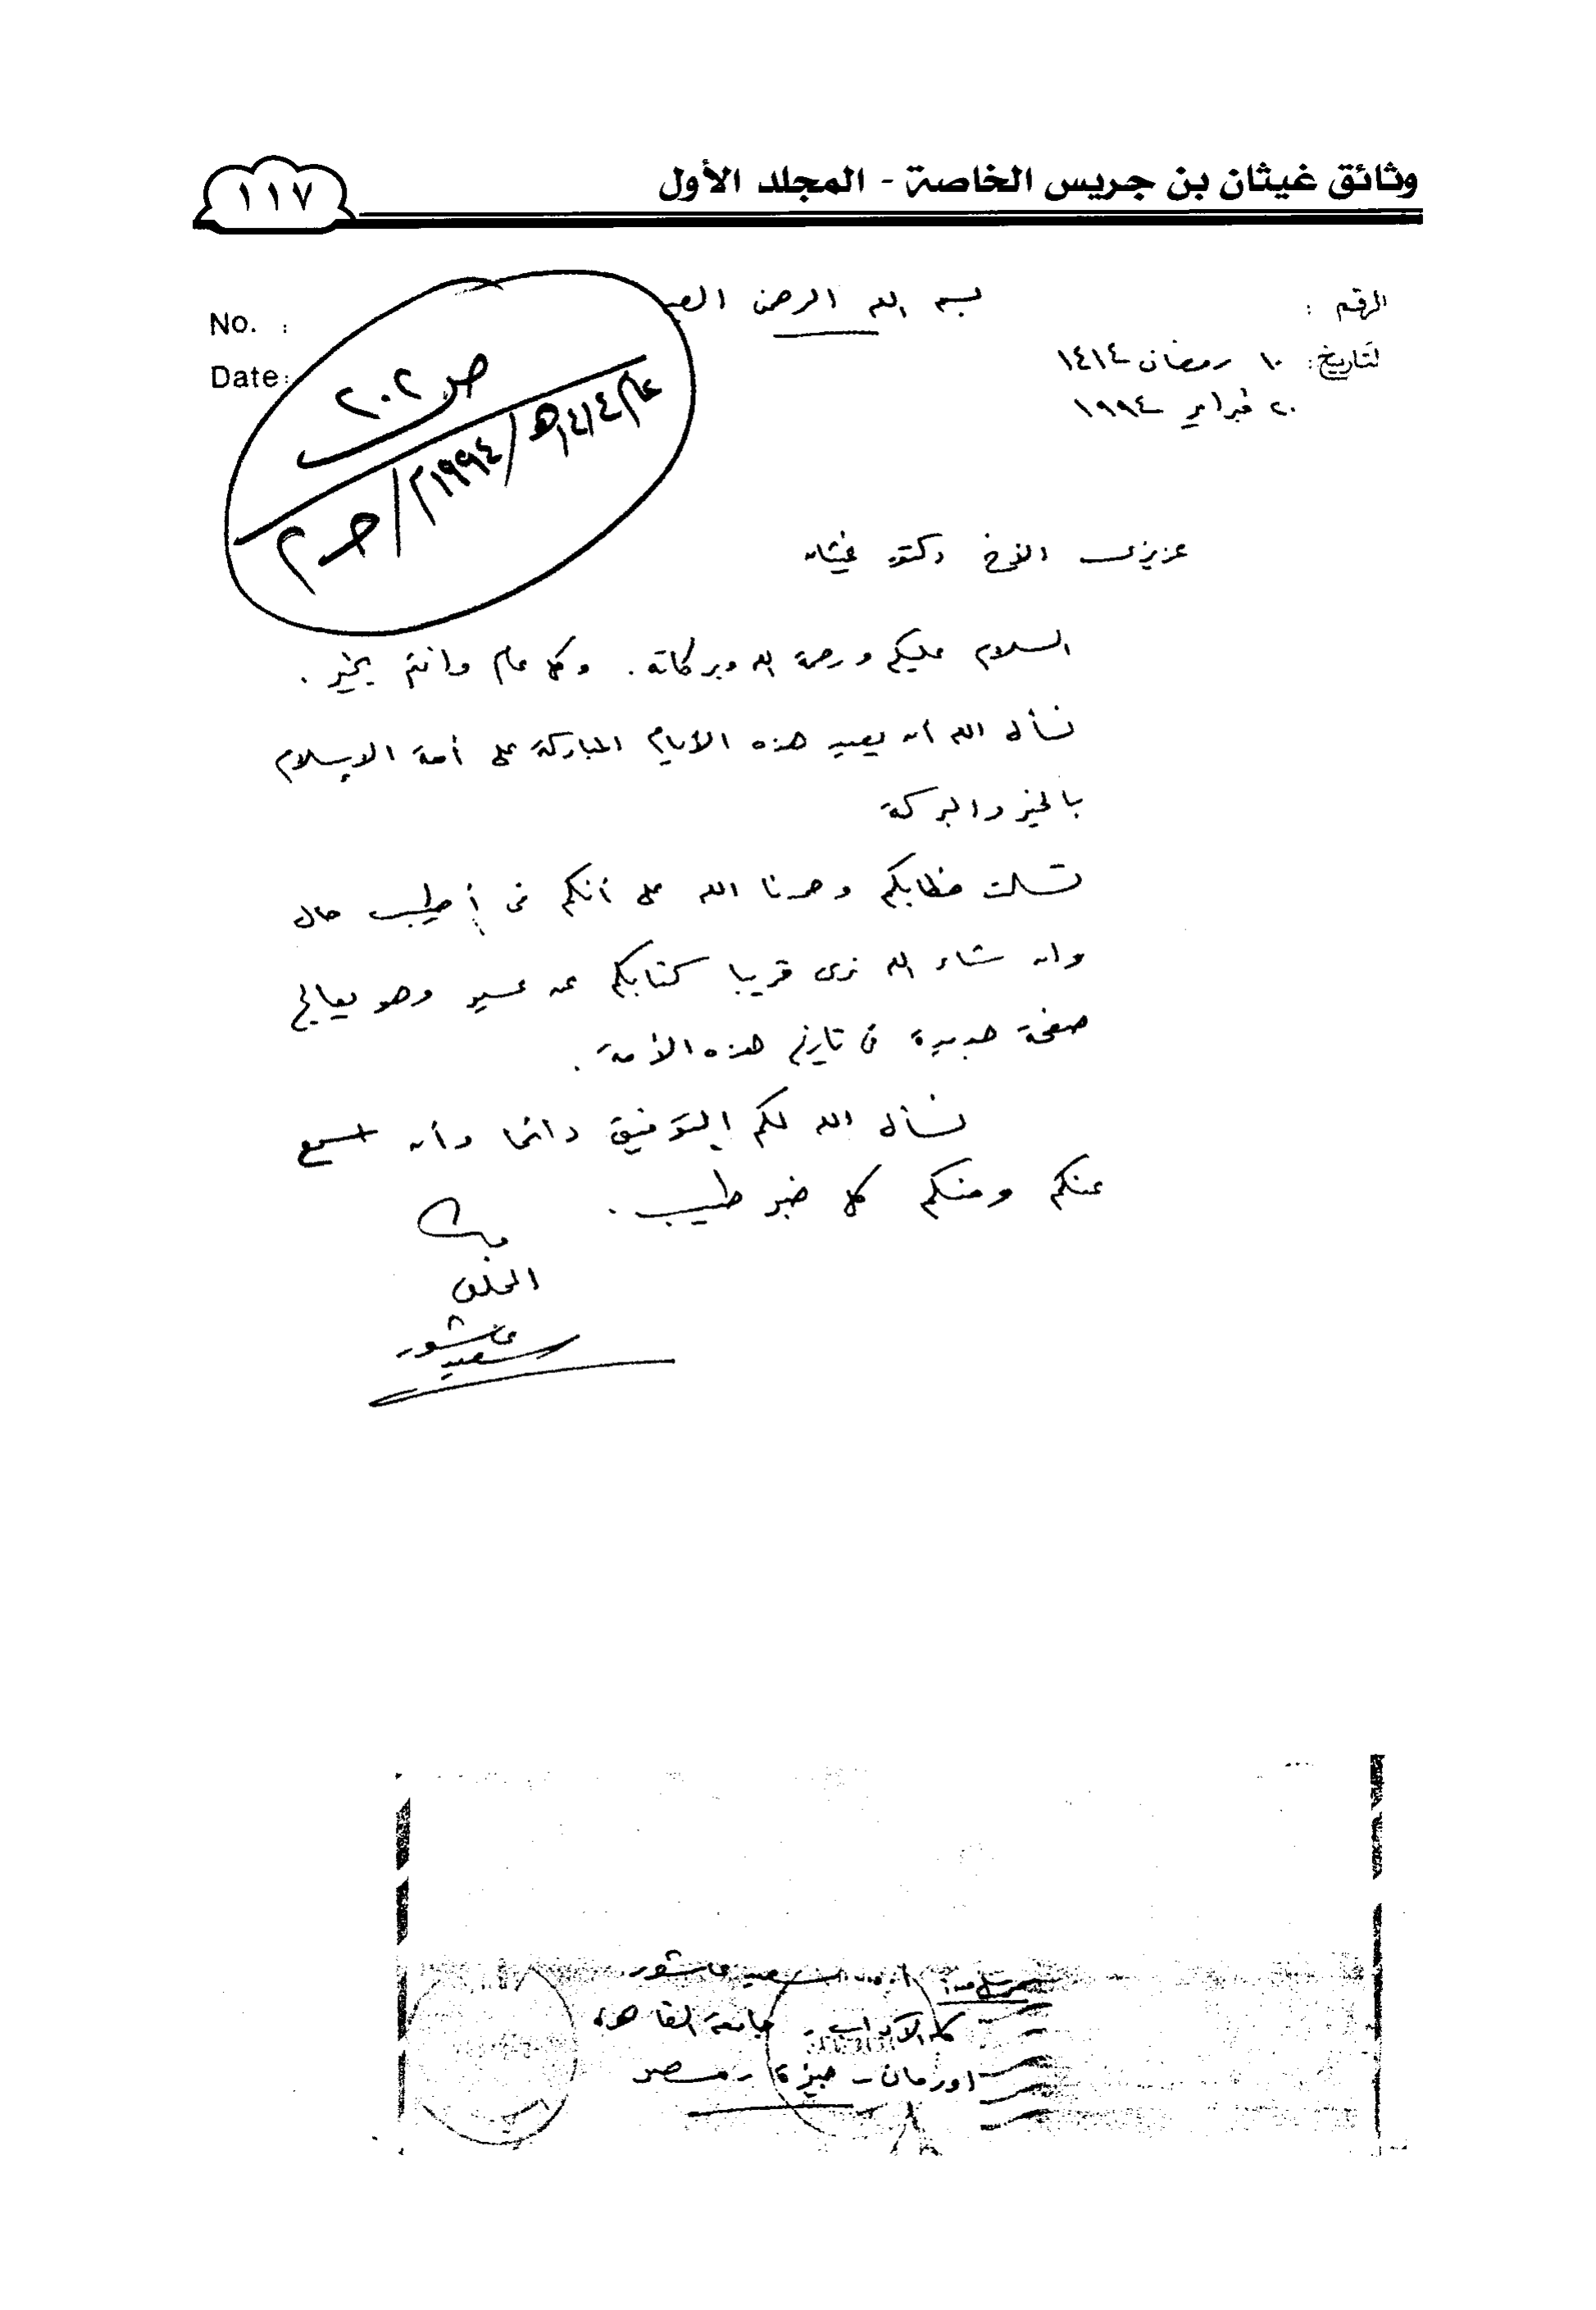 وثائق غيثان بن جريس الخاصة - المجلد الأول
١١٧
بسم الله الرحمن
الرقم :
No. :
لتاريخ: ١٠ رمضان ١٤١٤
Date:
٢٠ فبراير ١٩٩٤
ص ٢٠٢
عام ١٤١٤هـ / ١٩٩٤م / ح م
عزيزى الأخ دكتور غيثان
السلام عليكم ورحمة الله وبركاته . وكل عام وأنتم بخير .
نسأل الله أن يعيد هذه الأيام المباركة على أمة الاسلام
بالخير والبركة
تسلمت خطابكم وحمدنا الله على أنكم فى أطيب حال
وان شاء الله نرى قريبا كتابكم عن عسير وهو يعالج
صفحة جديدة فى تاريخ هذه الأمة .
نسأل الله لكم التوفيق دائما وأن نسمع
عنكم ومنكم كل خبر طيب .
المخلص
سعيد عاشور
سعيد عاشور
كلية الآداب - جامعة القاهرة
اورمان - جيزة - مصر